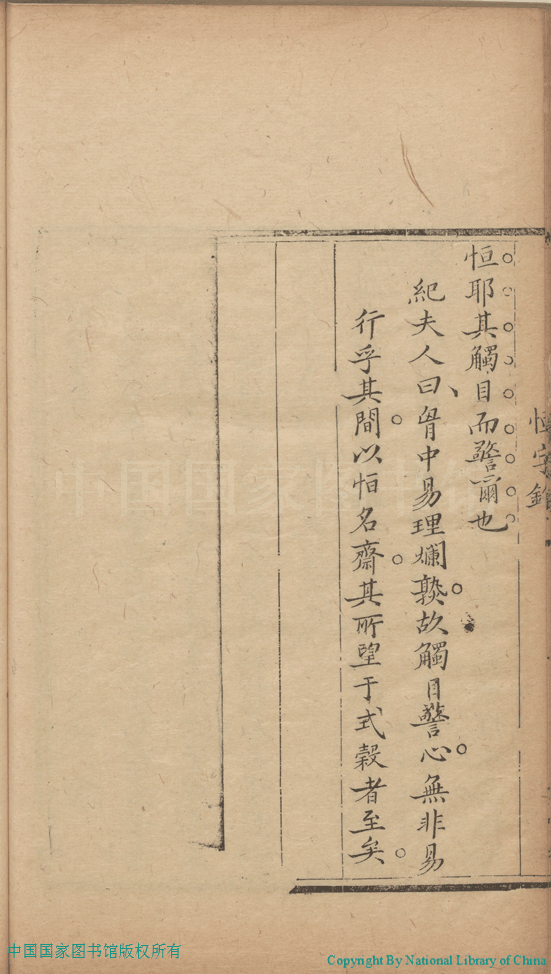 恒耶其觸目而警爾也
紀夫人曰胷中易理爛熟故觸目警心無非易
行乎其間以恒名齋其所望于式榖者至矣
中国国家图书馆
中国国家图书馆版权所有
Copyright By National Library of China